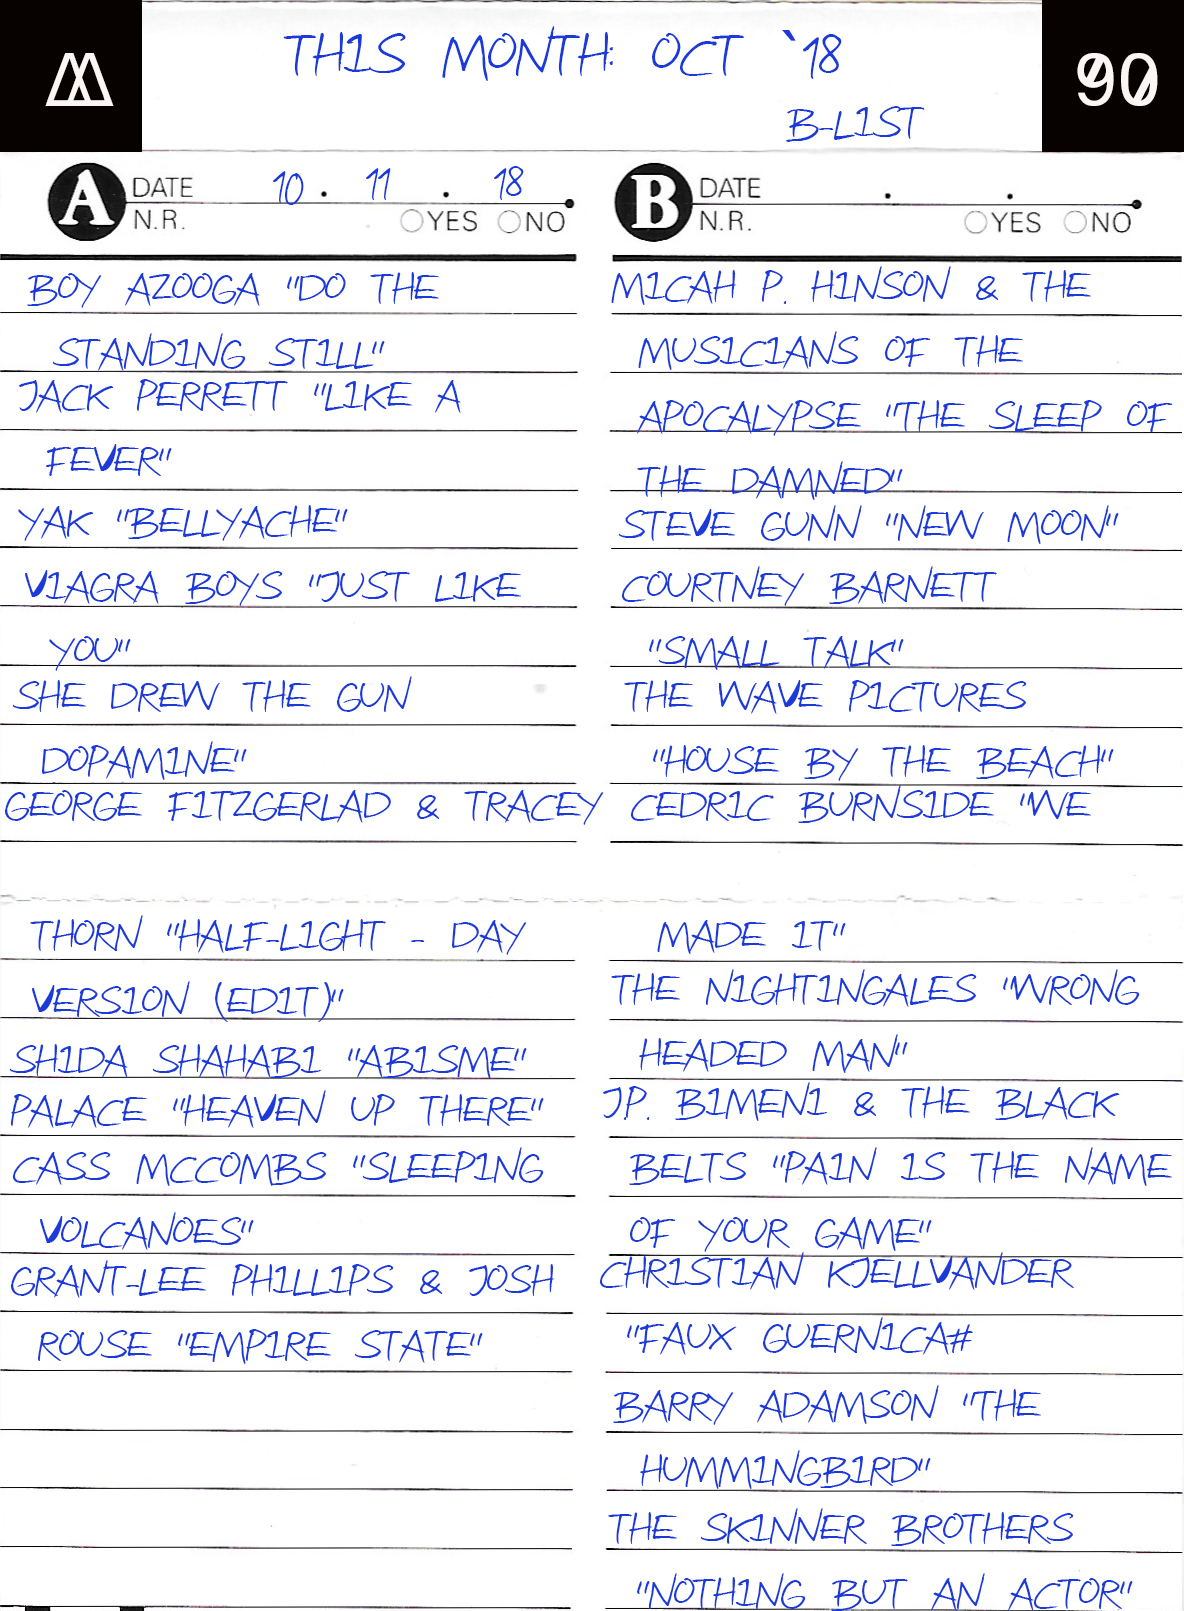 THIS MONTH: OCT `18
90
B-LIST
A DATE 10 . 11 . 18
N.R. YES NO
BOY AZOOGA "DO THE
STANDING STILL"
JACK PERRETT "LIKE A
FEVER"
YAK "BELLYACHE"
VIAGRA BOYS "JUST LIKE
YOU"
SHE DREW THE GUN
DOPAMINE"
GEORGE FITZGERLAD & TRACEY
THORN "HALF-LIGHT - DAY
VERSION (EDIT)"
SHIDA SHAHABI "ABISME"
PALACE "HEAVEN UP THERE"
CASS MCCOMBS "SLEEPING
VOLCANOES"
GRANT-LEE PHILLIPS & JOSH
ROUSE "EMPIRE STATE"
B DATE . .
N.R. YES NO
MICAH P. HINSON & THE
MUSICIANS OF THE
APOCALYPSE "THE SLEEP OF
THE DAMNED"
STEVE GUNN "NEW MOON"
COURTNEY BARNETT
"SMALL TALK"
THE WAVE PICTURES
"HOUSE BY THE BEACH"
CEDRIC BURNSIDE "WE
MADE IT"
THE NIGHTINGALES "WRONG
HEADED MAN"
JP. BIMENI & THE BLACK
BELTS "PAIN IS THE NAME
OF YOUR GAME"
CHRISTIAN KJELLVANDER
"FAUX GUERNICA#
BARRY ADAMSON "THE
HUMMINGBIRD"
THE SKINNER BROTHERS
"NOTHING BUT AN ACTOR"